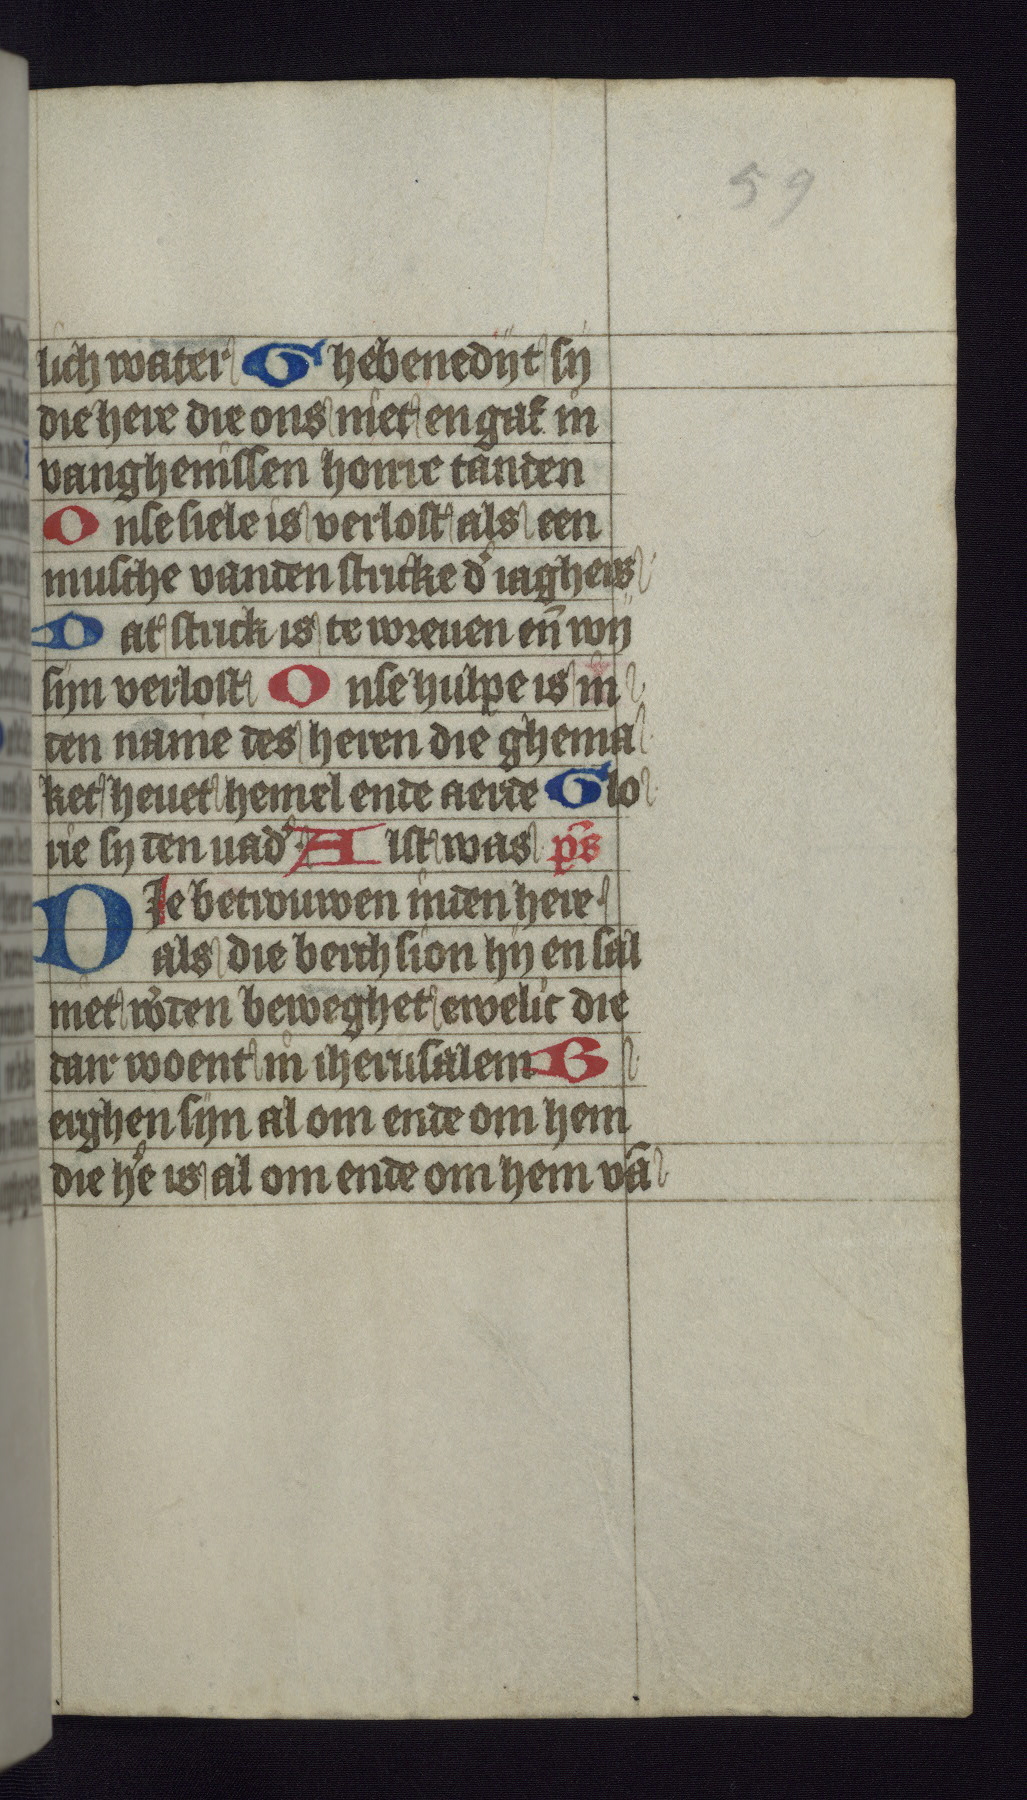 59
lich water Ghebenedijt sij
die here die ons niet en gaf in
vanghenissen horre tanden
Onse siele is verlost als een
musche vanden stricke d' iaghers
Dat strick is te wreuen en̄ wij
sijn verlost Onse hulpe is in
den name des heren die ghema
ket heuet hemel ende aerde Glo
rie sy den uad' Alst was ps̄
Die betrouwen inden here
als die berch sion hij en sal
niet w'den beweghet ewelic die
daer woent in iherusalem B
erghen sijn al om ende om hem
die h'e is al om ende om hem vā